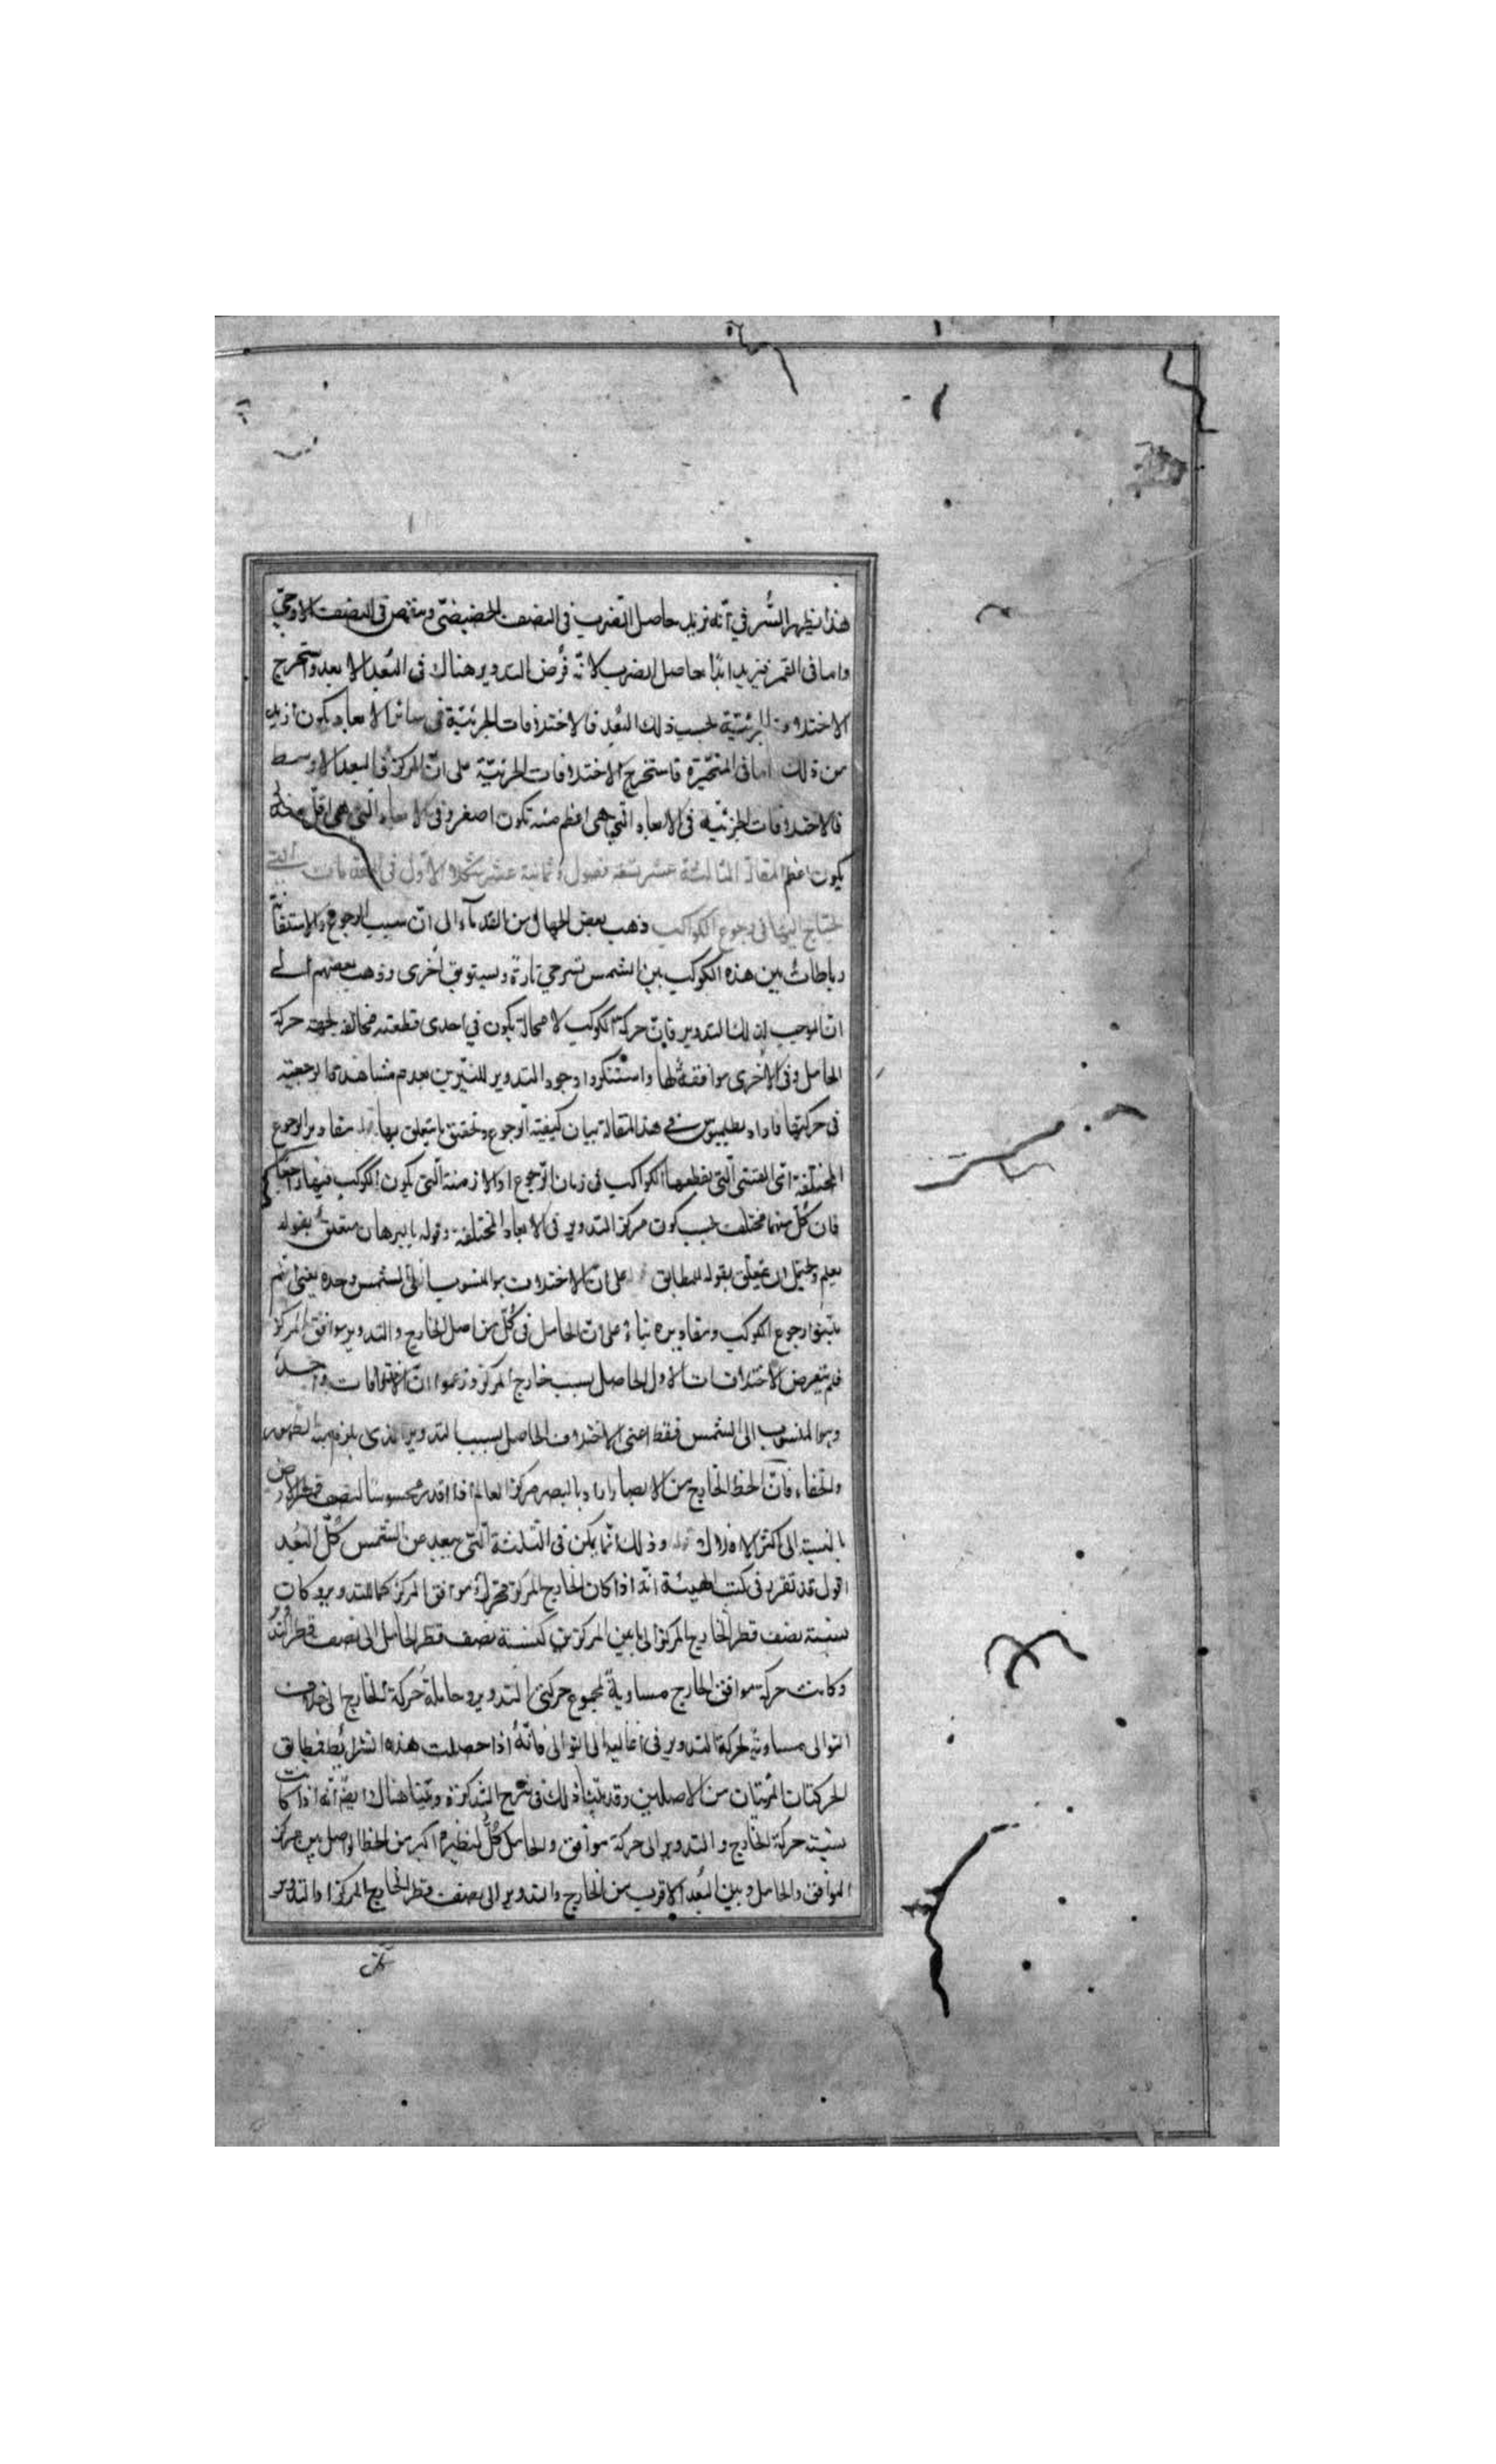 هذا يظهر السُّر في انه نزيد حاصل الضرب في النصف الحضيضيّ وينقص في النصف الاوجيّ
واما في القمر فنزيد ابدًا حاصل الضرب لانّه فرض التدوير هناك في البُعد الابعد واستخرج
الاختلافات الجزئيّة بحسب ذلك البُعد فالاختلافات الجزئيّة في سائر الابعاد يكون ازيد
من ذلك اما في المتحيّرة فاستخرج الاختلافات الجزئيّة على انّ المركز في البعد الاوسط
فالاختلافات الجزئيّه في الابعاد التي هي اعظم منه تكون اصغر وفي الابعاد التي هي اقلّ منه
يكون اعظم المقالة الثالثة عشر تسعة فصول وثمانية عشر شكلا الاول في المقدمات التي
يحتاج اليها في رجوع الكواكب ذهب بعض الجهال من القدماء الى انّ سبب الرجوع والاستقامة
رباطاتٌ بين هذه الكوكب بين الشمس تسترخي تارةً ويستوثق اُخرى وذهب بعضهم الى
انّ الموجب لذلك التدوير فانّ حركة الكوكب لا محالة يكون في احدى قطعتيه مخالفه لجهة حركة
الحامل وفي الاُخرى موافقةٌ لها واستنكروا وجود التدوير للنيّرين بعدم مشاهدة الرجعيّة
في حركتهما فاراد بطلميوس في هذا المقالة بيان كيفيّة الرجوع وتحقيق ما يتعلق بها قوله مقادير الرجوع
المختلفة اي القسّى التي يقطعها الكواكب في زمان الرّجوع او الازمنة التي يكون الكوكب فيها راجعًا
فان كلّ منهما مختلف بحسب كون مركز التدوير في الابعاد المختلفة وقوله بالبرهان متعلقٌ بقوله
يعلم ويحتمل ان يتعلّق بقوله المطابق قوله على انّ الاختلاف هو المنسوب الى الشمس وحده يعني انهم
بيّنوا رجوع الكوكب ومقاديره بناءً على انّ الحامل في كلّ من اصل الخارج والتدوير موافق المركز
فلم يتعرض لاختلافات الاول الحاصل بسبب خارج المركز وزعموا انّ الاختلافات واحدة
وهو المنسوب الى الشمس فقط اعني الاختلاف الحاصل بسبب التدوير الذي يلزم منه الظهور
والخفاء فانّ الخط الخارج من الابصار اراد بالبصر مركز العالم اذ لا قدر محسوسًا لنصف قطر الارض
بالنسبة الى اكثر الافلاك قوله وذلك انّما يمكن في الثلثة التي يبعد عن الشمس كلّ البُعد
اقول قد تقرر في كتب الهيئة انّه اذا كان الخارج المركز متحركٌ موافق المركز كما للتدوير وكان
نسبة نصف قطر الخارج المركز الى ما بين المركزين كنسبة نصف قطر الحامل الى نصف قطر التدوير
وكانت حركة موافق الخارج مساويةً لمجموع حركتي التدوير وحامله وحركة الخارج الى خلاف
التوالى مساويةً لحركة التدوير في اعاليه الى التوالى فانّهُ اذا حصلت هذه الشرائط فتطابق
الحركتان المرئيتان من الاصلين وقد بيّنّا ذلك في شرح التذكرة وبيّنا هناك ايضًا انّه اذا كانت
نسبة حركة الخارج والتدوير الى حركة موافق والحامل كلٌّ لنظيره اكبر من الخط الواصل بين مركز
الموافق والحامل وبين البُعد الاقرب من الخارج والتدوير الى نصف قطر الخارج المركز او التدوير